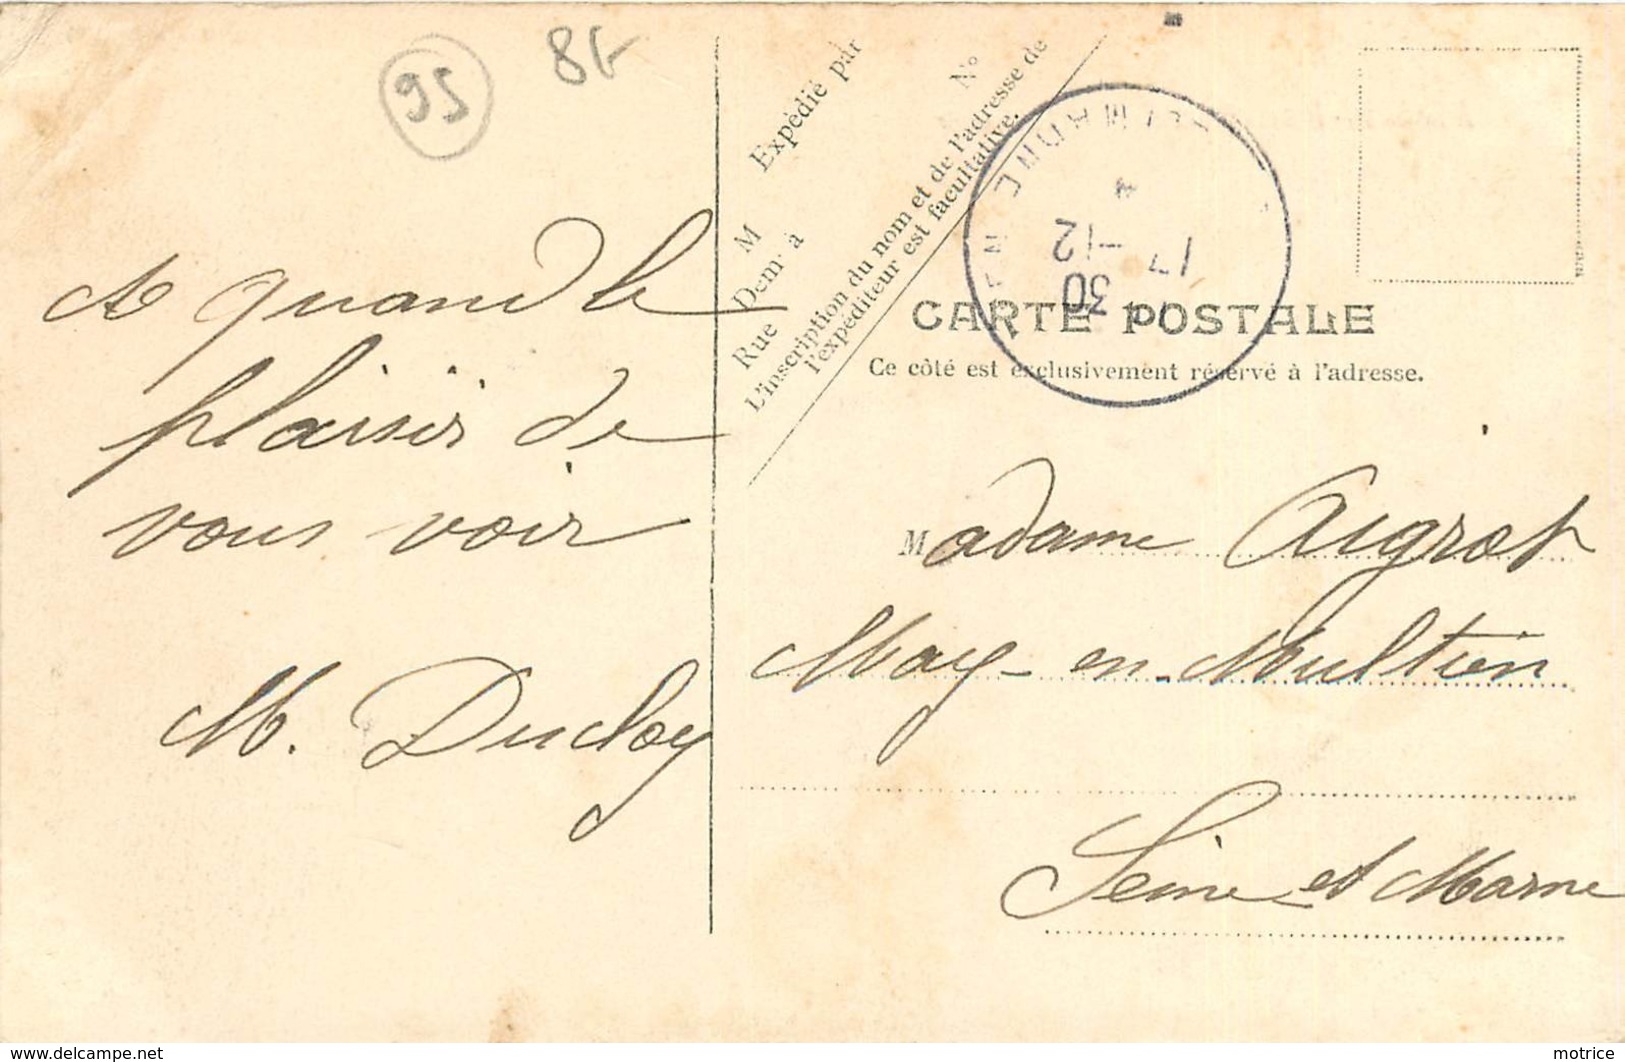 95
8F
A quand le
plaisir de
vous voir
M. Ducloy
M
Expédié par
Demt à
Rue
N°
L'inscription du nom et de l'adresse de
l'expéditeur est facultative.
17-12
30
CARTE POSTALE
Ce côté est exclusivement réservé à l'adresse.
Madame Aigrot
May-en-Multien
Seine et Marne
www.delcampe.net
motrice